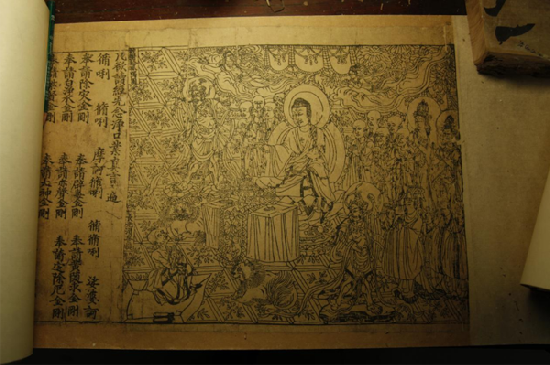 凡欲讀經先念淨口業真言一遍
脩唎 脩唎 摩訶脩唎 脩脩唎 娑婆訶
奉請除災金剛 奉請辟毒金剛 奉請黃隨求金剛
奉請白淨水金剛 奉請赤聲金剛 奉請定除厄金剛
奉請紫賢金剛 奉請大神金剛